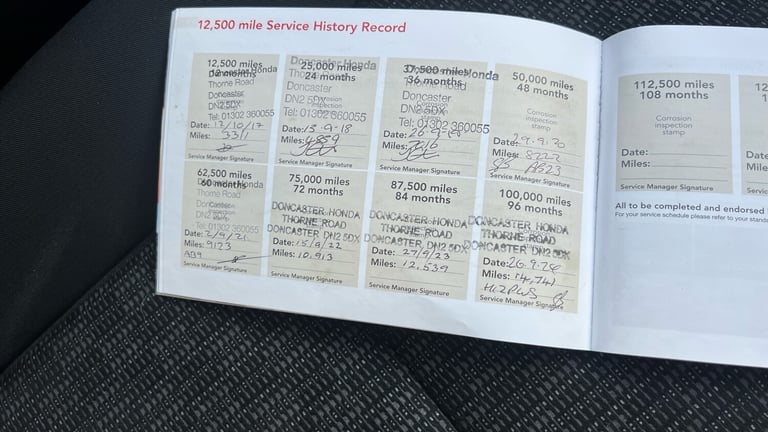 12,500 mile Service History Record
12,500 miles
12 months
Doncaster Honda
Thorne Road
Doncaster
DN2 5DX
Tel: 01302 360055
Date: 12/10/17
Miles: 3311
Service Manager Signature
25,000 miles
24 months
Doncaster Honda
Thorne Road
Doncaster
DN2 5DX
Corrosion
inspection
stamp
Tel: 01302 360055
Date: 13-9-18
Miles:
Service Manager Signature
37,500 miles
36 months
Doncaster Honda
Thorne Road
Doncaster
DN2 5DX
Tel: 01302 360055
Date:
Miles:
Service Manager Signature
50,000 miles
48 months
Corrosion
inspection
stamp
Date: 29.9.20
Miles: 8222
Service Manager Signature
62,500 miles
60 months
Doncaster Honda
Thorne Road
Doncaster
DN2
Tel: 01302 360055
Date: 2/9/21
Miles: 9123
Service Manager Signature
75,000 miles
72 months
DONCASTER HONDA
THORNE ROAD
DONCASTER DN2 5DX
Date: 15/9/22
Miles: 10,913
Service Manager Signature
87,500 miles
84 months
DONCASTER HONDA
THORNE ROAD
DONCASTER, DN2 5DX
Date: 27/9/23
Miles: 12,539
Service Manager Signature
100,000 miles
96 months
DONCASTER HONDA
THORNE ROAD
DONCASTER DN2 5DX
Date: 26.9.24
Miles: 14,741
Service Manager Signature
112,500 miles
108 months
Corrosion
inspection
stamp
Date:
Miles:
Service Manager Signature
Date
Mile
Service
All to be completed and endorsed
For your service schedule please refer to your